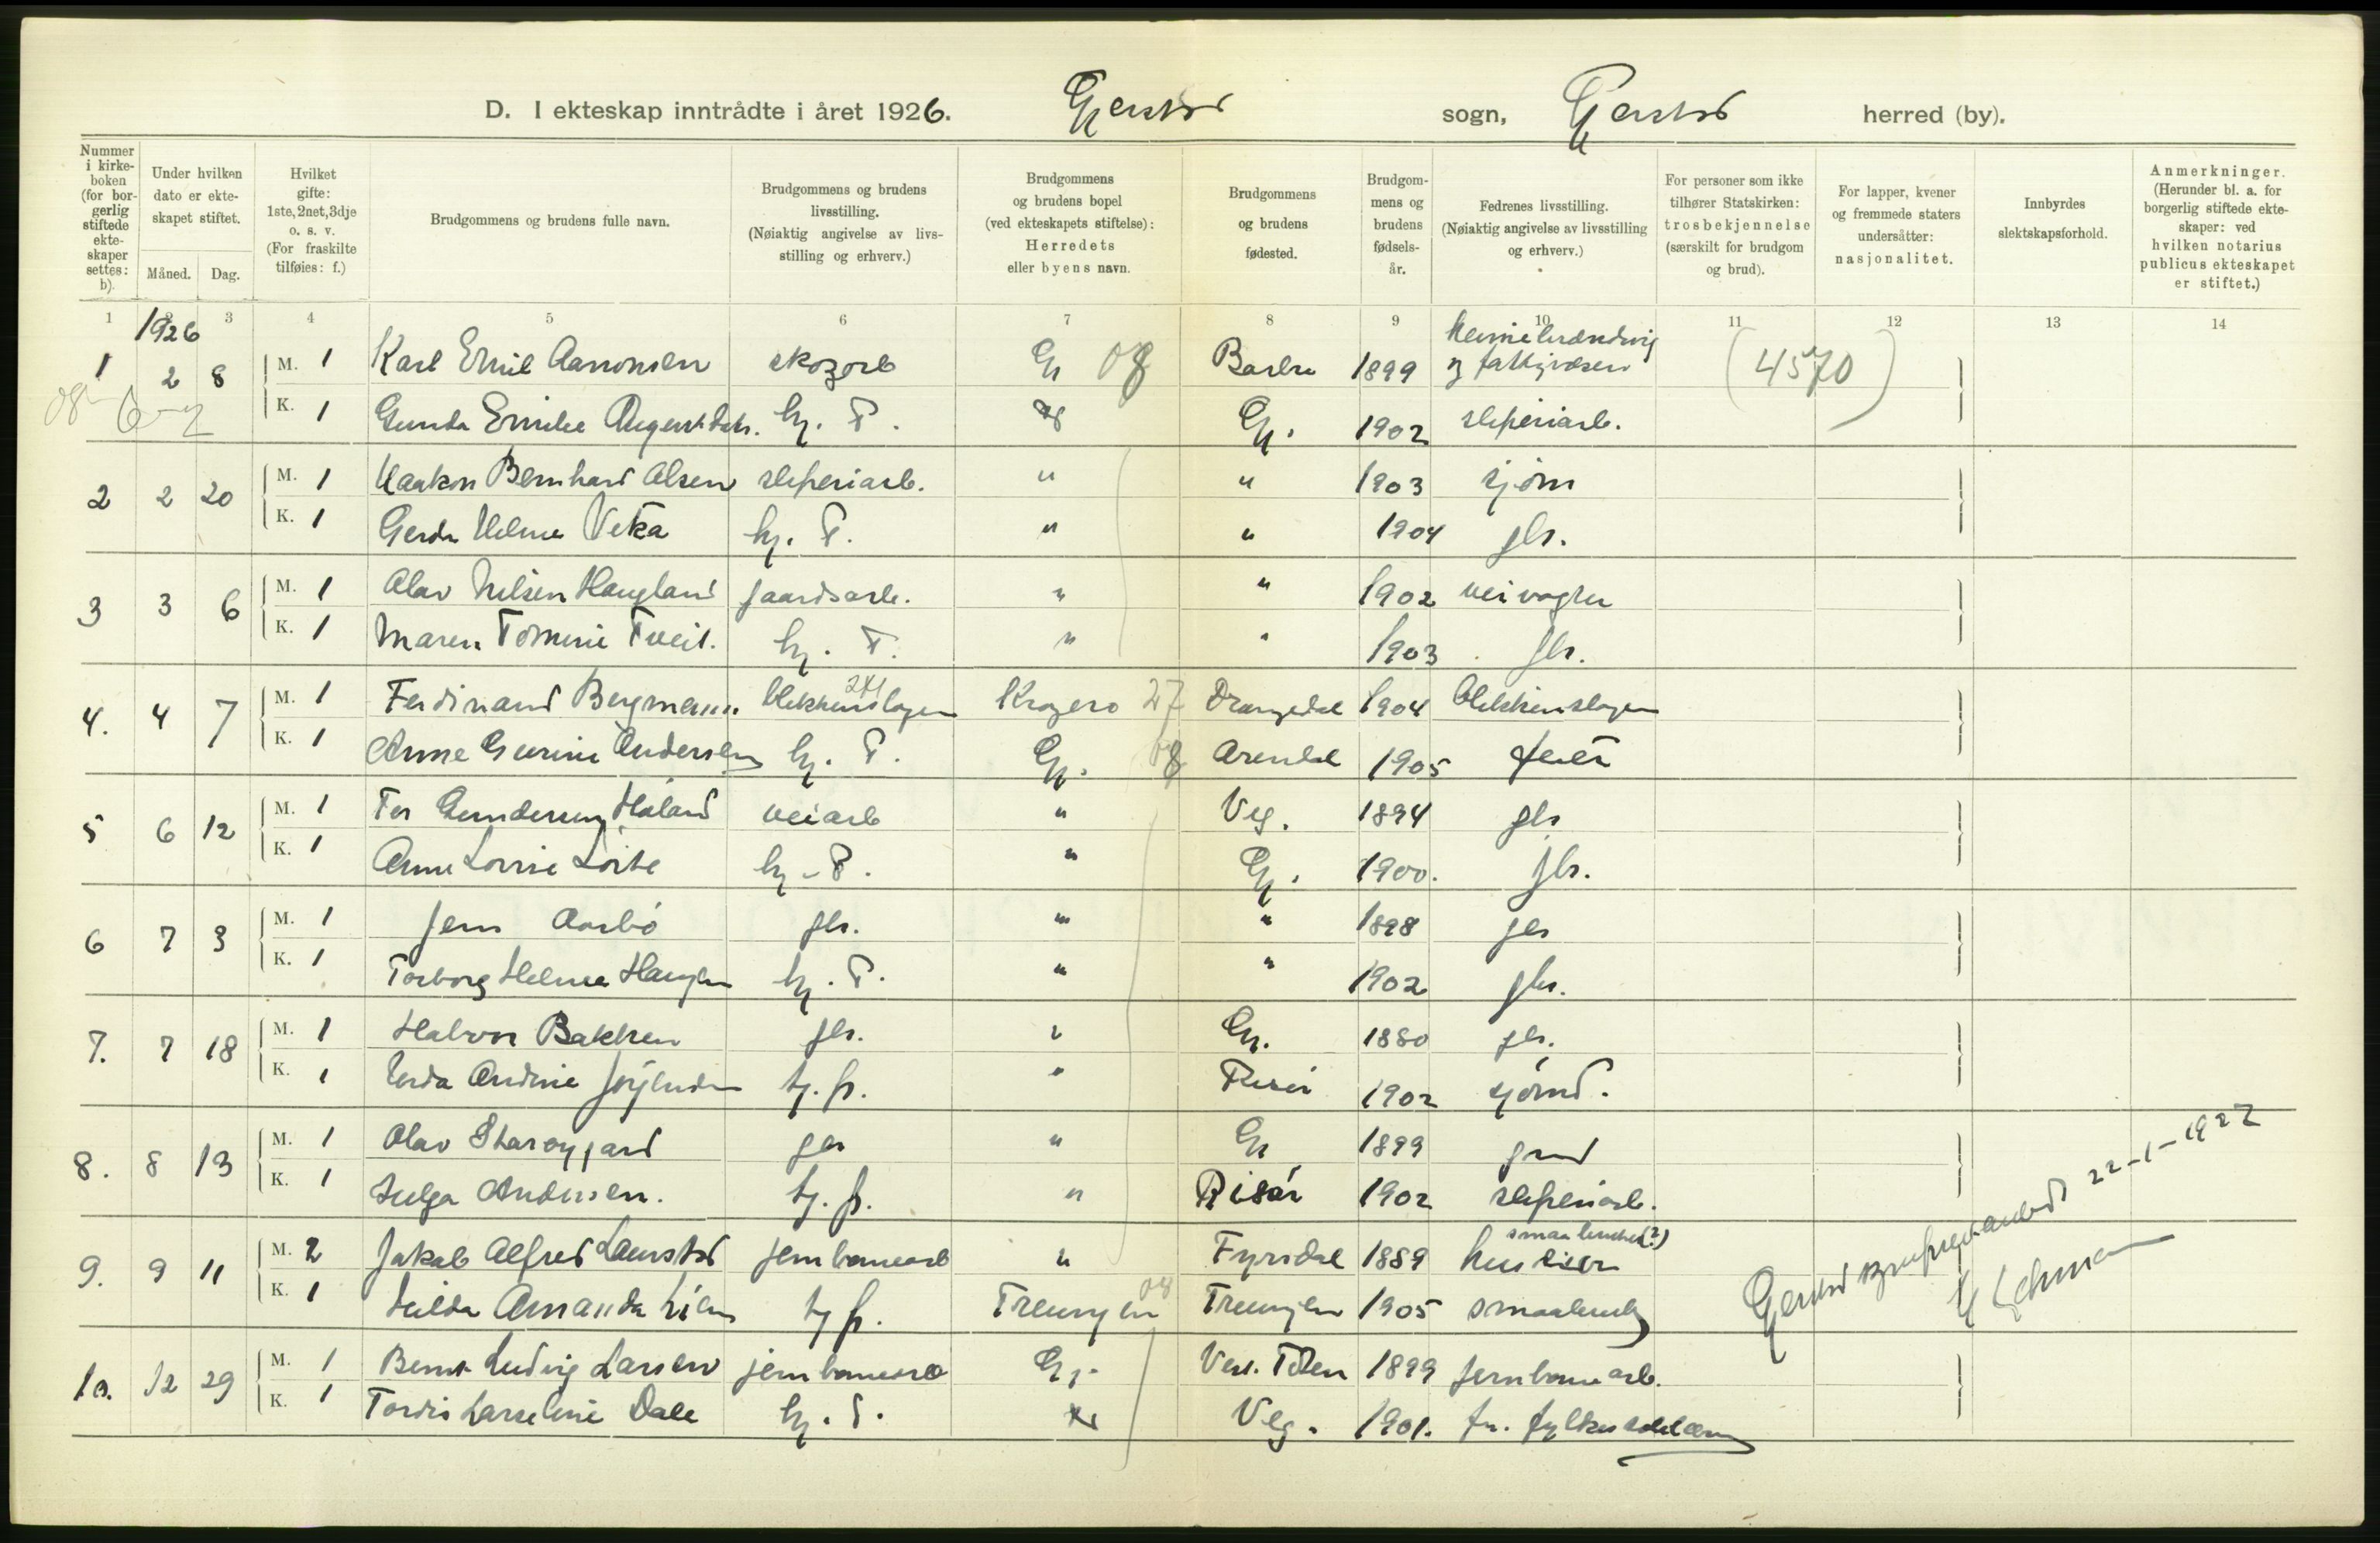 D. I ekteskap inntrådte i året 1926. Gjerstad sogn, Gjerstad herred (by).
Nummer i kirkeboken (for borgerlig stiftede ekteskaper settes: b).
Under hvilken dato er ekteskapet stiftet.
Måned. Dag.
Hvilket gifte: 1ste, 2net, 3dje o. s. v. (For fraskilte tilføies: f.)
Brudgommens og brudens fulle navn.
Brudgommens og brudens livsstilling. (Nøiaktig angivelse av livsstilling og erhverv.)
Brudgommens og brudens bopel (ved ekteskapets stiftelse): Herredets eller byens navn.
Brudgommens og brudens fødested.
Brudgommens og brudens fødselsår.
Fedrenes livsstilling. (Nøiaktig angivelse av livsstilling og erhverv.)
For personer som ikke tilhører Statskirken: trosbekjennelse (særskilt for brudgom og brud).
For lapper, kvener og fremmede staters undersåtter: nasjonalitet.
Innbyrdes slektskapsforhold.
Anmerkninger. (Herunder bl. a. for borgerlig stiftede ekteskaper: ved hvilken notarius publicus ekteskapet er stiftet.)
1 2 3 4 5 6 7 8 9 10 11 12 13 14
1926
1 2 8 M. 1 Karl Emil Aanonsen skogarb Gj 08 1899 (4570)
K. 1 Gunda Emilie hj. F. Gj. 1902 sliperiarb.
2 2 20 M. 1 Haakon Bernhard Olsen sliperiarb. " " 1903 sjøm
K. 1 Gerda Helme Veka hj. F. " " 1904 gbr.
3 3 6 M. 1 Olav Nilsen Haugland gaardsarb. " " 1902 veivogter
K. 1 Maren Tomine Tveit. hj. F. " " 1903 gbr.
4. 4 7 M. 1 Ferdinand Bergmann blikkenslager Kragerø 27 Drangedal 1904 blikkenslager
K. 1 Anne Gurine Andersen hj. F. Gj. 08 Arendal 1905
5 6 12 M. 1 Tor Gundersen Haland veiarb " Veg. 1894 gbr
K. 1 hj. F. " Gj. 1900. gbr.
6 7 3 M. 1 Jens Aasbö gbr. " " 1898 gbr
K. 1 Torborg Helme Haugen hj. F. " " 1902 gbr.
7. 7 18 M. 1 Halvor Bakken gbr. " Gj. 1880 gbr.
K. 1 Andine tj. p. " Risör 1902 sjömd.
8. 8 13 M. 1 Olav gbr " Gj 1899 grd
K. 1 Helga Andersen. tj. p. " Risör 1902 sliperiarb.
9. 9 11 M. 2 Jakob Alfred jernbanearb " Fyrisdal 1889 smaabruker(?)
K. 1 Hilda Amanda Lien tj p. Treungen 08 Treungen 1905 smaabruk
10. 12 29 M. 1 Bernt Ludvig Larsen jernbanearb Gj. Vest. Toten 1899 jernbanearb.
K. 1 Tordis Larseline Dale hj. F. Veg. 1901.
Gjerstad 22-1-1927